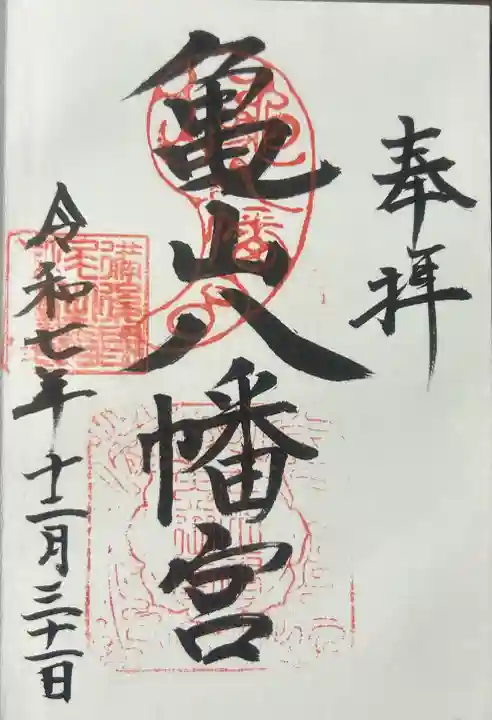 奉拝
亀山八幡宮
令和七年十二月三十一日